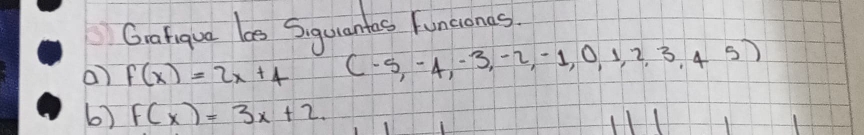 Grafique las Siguientes Funciones.
a) f(x) = 2x + 4 (-5, -4, -3, -2, -1, 0, 1, 2, 3, 4 5)
b) f(x) = 3x + 2.